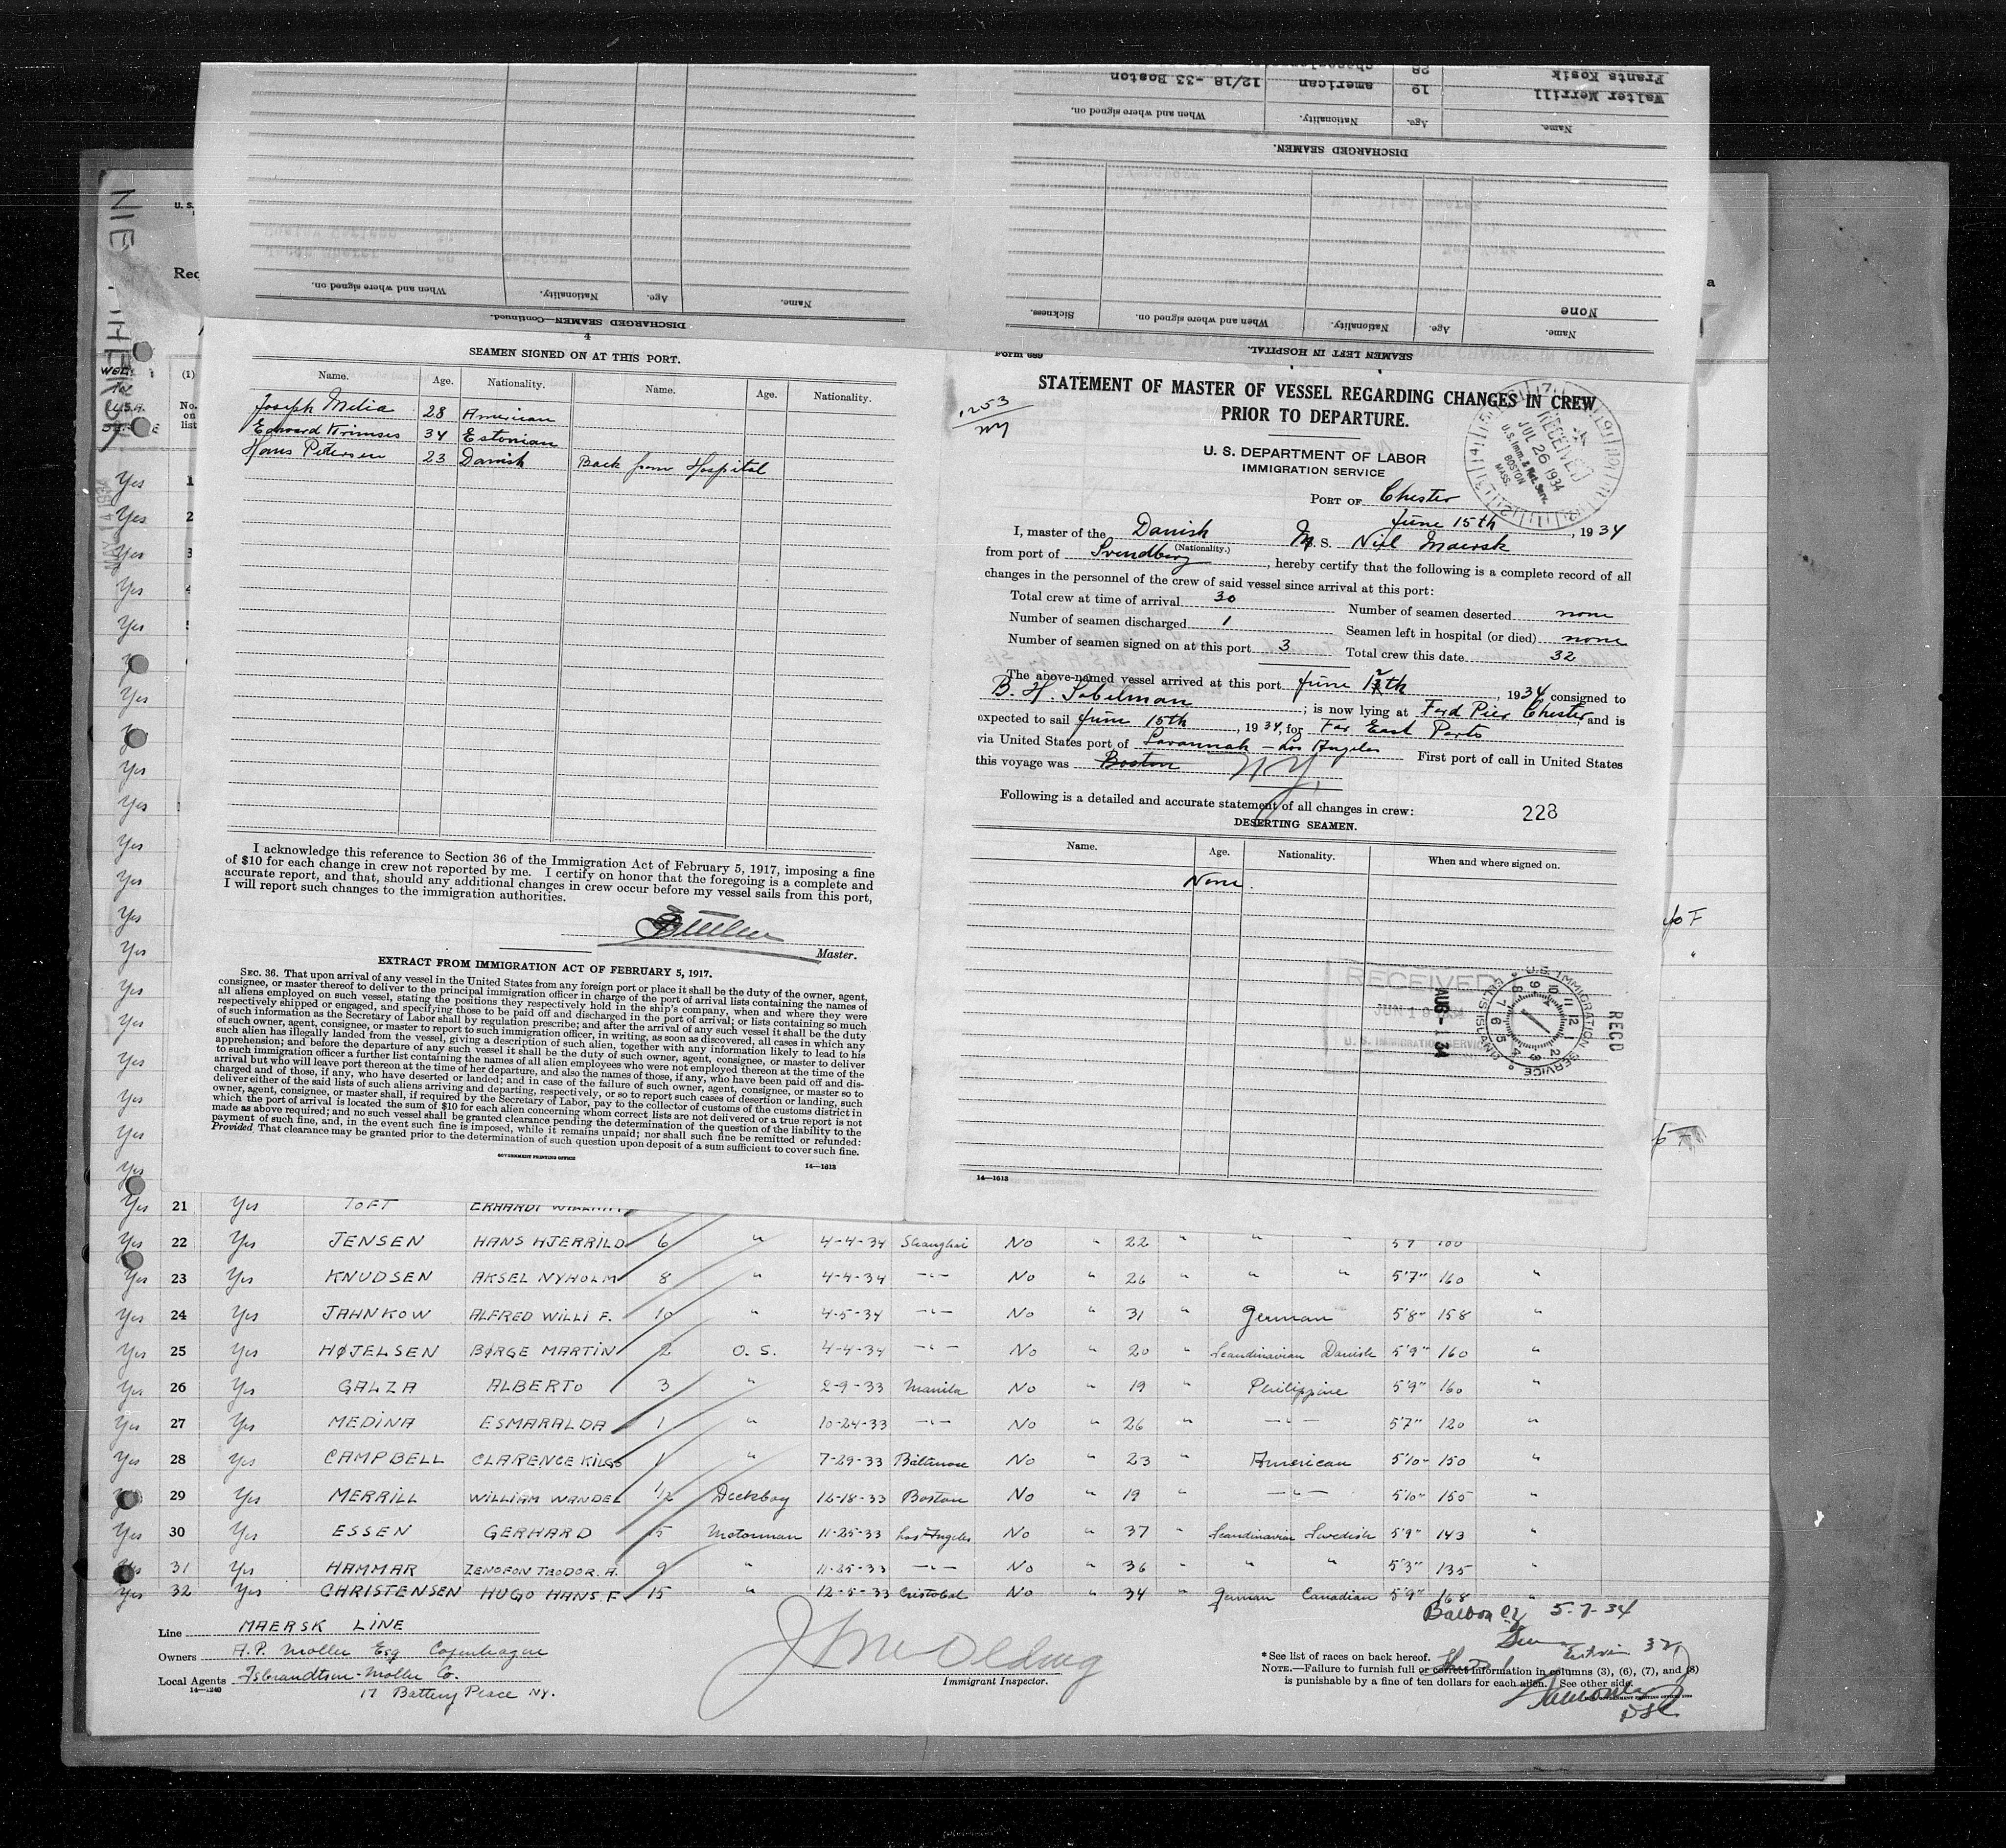 Frants Kosik 28
Walter Merrill 19 american 12/18-33 Boston
Name. Age. Nationality. When and where signed on.
DISCHARGED SEAMEN.
None
Name. Age. Nationality. When and where signed on. Sickness.
SEAMEN LEFT IN HOSPITAL.
Name. Age. Nationality. When and where signed on.
DISCHARGED SEAMEN—Continued.
4
SEAMEN SIGNED ON AT THIS PORT.
Name. Age. Nationality. Name. Age. Nationality.
Joseph Melia 28 American
Edward Krimses 34 Estonian
Hans Petersen 23 Danish Back from Hospital
I acknowledge this reference to Section 36 of the Immigration Act of February 5, 1917, imposing a fine
of $10 for each change in crew not reported by me. I certify on honor that the foregoing is a complete and
accurate report, and that, should any additional changes in crew occur before my vessel sails from this port,
I will report such changes to the immigration authorities.
Master.
EXTRACT FROM IMMIGRATION ACT OF FEBRUARY 5, 1917.
SEC. 36. That upon arrival of any vessel in the United States from any foreign port or place it shall be the duty of the owner, agent,
consignee, or master thereof to deliver to the principal immigration officer in charge of the port of arrival lists containing the names of
all aliens employed on such vessel, stating the positions they respectively hold in the ship's company, when and where they were
respectively shipped or engaged, and specifying those to be paid off and discharged in the port of arrival; or lists containing so much
of such information as the Secretary of Labor shall by regulation prescribe; and after the arrival of any such vessel it shall be the duty
of such owner, agent, consignee, or master to report to such immigration officer, in writing, as soon as discovered, all cases in which any
such alien has illegally landed from the vessel, giving a description of such alien, together with any information likely to lead to his
apprehension; and before the departure of any such vessel it shall be the duty of such owner, agent, consignee, or master to deliver
to such immigration officer a further list containing the names of all alien employees who were not employed thereon at the time of the
arrival but who will leave port thereon at the time of her departure, and also the names of those, if any, who have been paid off and dis-
charged and of those, if any, who have deserted or landed; and in case of the failure of such owner, agent, consignee, or master so to
deliver either of the said lists of such aliens arriving and departing, respectively, or so to report such cases of desertion or landing, such
owner, agent, consignee, or master shall, if required by the Secretary of Labor, pay to the collector of customs of the customs district in
which the port of arrival is located the sum of $10 for each alien concerning whom correct lists are not delivered or a true report is not
made as above required; and no such vessel shall be granted clearance pending the determination of the question of the liability to the
payment of such fine, and, in the event such fine is imposed, while it remains unpaid; nor shall such fine be remitted or refunded:
Provided, That clearance may be granted prior to the determination of such question upon deposit of a sum sufficient to cover such fine.
GOVERNMENT PRINTING OFFICE
14—1613
Form 689
1253
NY
STATEMENT OF MASTER OF VESSEL REGARDING CHANGES IN CREW
PRIOR TO DEPARTURE.
U. S. DEPARTMENT OF LABOR
IMMIGRATION SERVICE
RECEIVED
JUL 26 1934
U.S. Imm. & Nat. Serv.
BOSTON
MASS.
PORT OF Chester
June 15th, 1934
I, master of the Danish M. S. Niel Maersk
(Nationality.)
from port of Svendborg, hereby certify that the following is a complete record of all
changes in the personnel of the crew of said vessel since arrival at this port:
Total crew at time of arrival 30 Number of seamen deserted none
Number of seamen discharged 1 Seamen left in hospital (or died) none
Number of seamen signed on at this port 3 Total crew this date 32
The above-named vessel arrived at this port June 12th, 1934 consigned to
B. H. Sobelman; is now lying at Ford Pier Chester, and is
expected to sail June 15th, 1934, for Far East Ports
via United States port of Savannah - Los Angeles First port of call in United States
this voyage was Boston NY,
Following is a detailed and accurate statement of all changes in crew:
228
DESERTING SEAMEN.
Name. Age. Nationality. When and where signed on.
None.
RECEIVED
JUN 1
U. S. IMMIGRATION SERVICE
AUG - 1 34
RECD
U.S. IMMIGRATION SERVICE
14—1613
U. S.
Rec
(1)
No. on list
21 Yes TOFT
Yes 22 Yes JENSEN HANS HJERRILD 6 " 4-4-34 Shanghai No " 22 " " "
Yes 23 Yes KNUDSEN AKSEL NYHOLM 8 " 4-4-34 -"- No " 26 " " " 5'7" 160 "
Yes 24 Yes JAHNKOW ALFRED WILLI F. 10 " 4-5-34 -"- No " 31 " German 5'8" 158 "
Yes 25 Yes HØJELSEN BØRGE MARTIN 2 O. S. 4-4-34 -"- No " 20 " Scandinavian Danish 5'9" 160 "
Yes 26 Yes GALZA ALBERTO 3 " 2-9-33 Manila No " 19 " Philippine 5'9" 160 "
Yes 27 Yes MEDINA ESMARALDA 1 " 10-24-33 -"- No " 26 " -"- 5'7" 120 "
Yes 28 Yes CAMPBELL CLARENCE KILGO 1 " 7-29-33 Baltimore No " 23 " American 5'10" 150 "
Yes 29 Yes MERRILL WILLIAM WANDEL 1/2 Deckboy 12-18-33 Boston No " 19 " -"- 5'10" 155 "
Yes 30 Yes ESSEN GERHARD 15 Motorman 11-25-33 Los Angeles No " 37 " Scandinavian Swedish 5'9" 143 "
Yes 31 Yes HAMMAR ZENOFON TEODOR. A. 9 " 11-25-33 -"- No " 36 " " " 5'3" 135 "
Yes 32 Yes CHRISTENSEN HUGO HANS. F. 15 " 12-5-33 Cristobal No " 34 " German Canadian 5'9" 168 "
Balboa CZ 5-7-34
Line MAERSK LINE
Owners A. P. Moller Esq Copenhague
Local Agents Isbrandtsen-Moller Co.
14—1240
17 Battery Place NY.
Immigrant Inspector.
*See list of races on back hereof.
NOTE.—Failure to furnish full or correct information in columns (3), (6), (7), and (8)
is punishable by a fine of ten dollars for each alien. See other side.